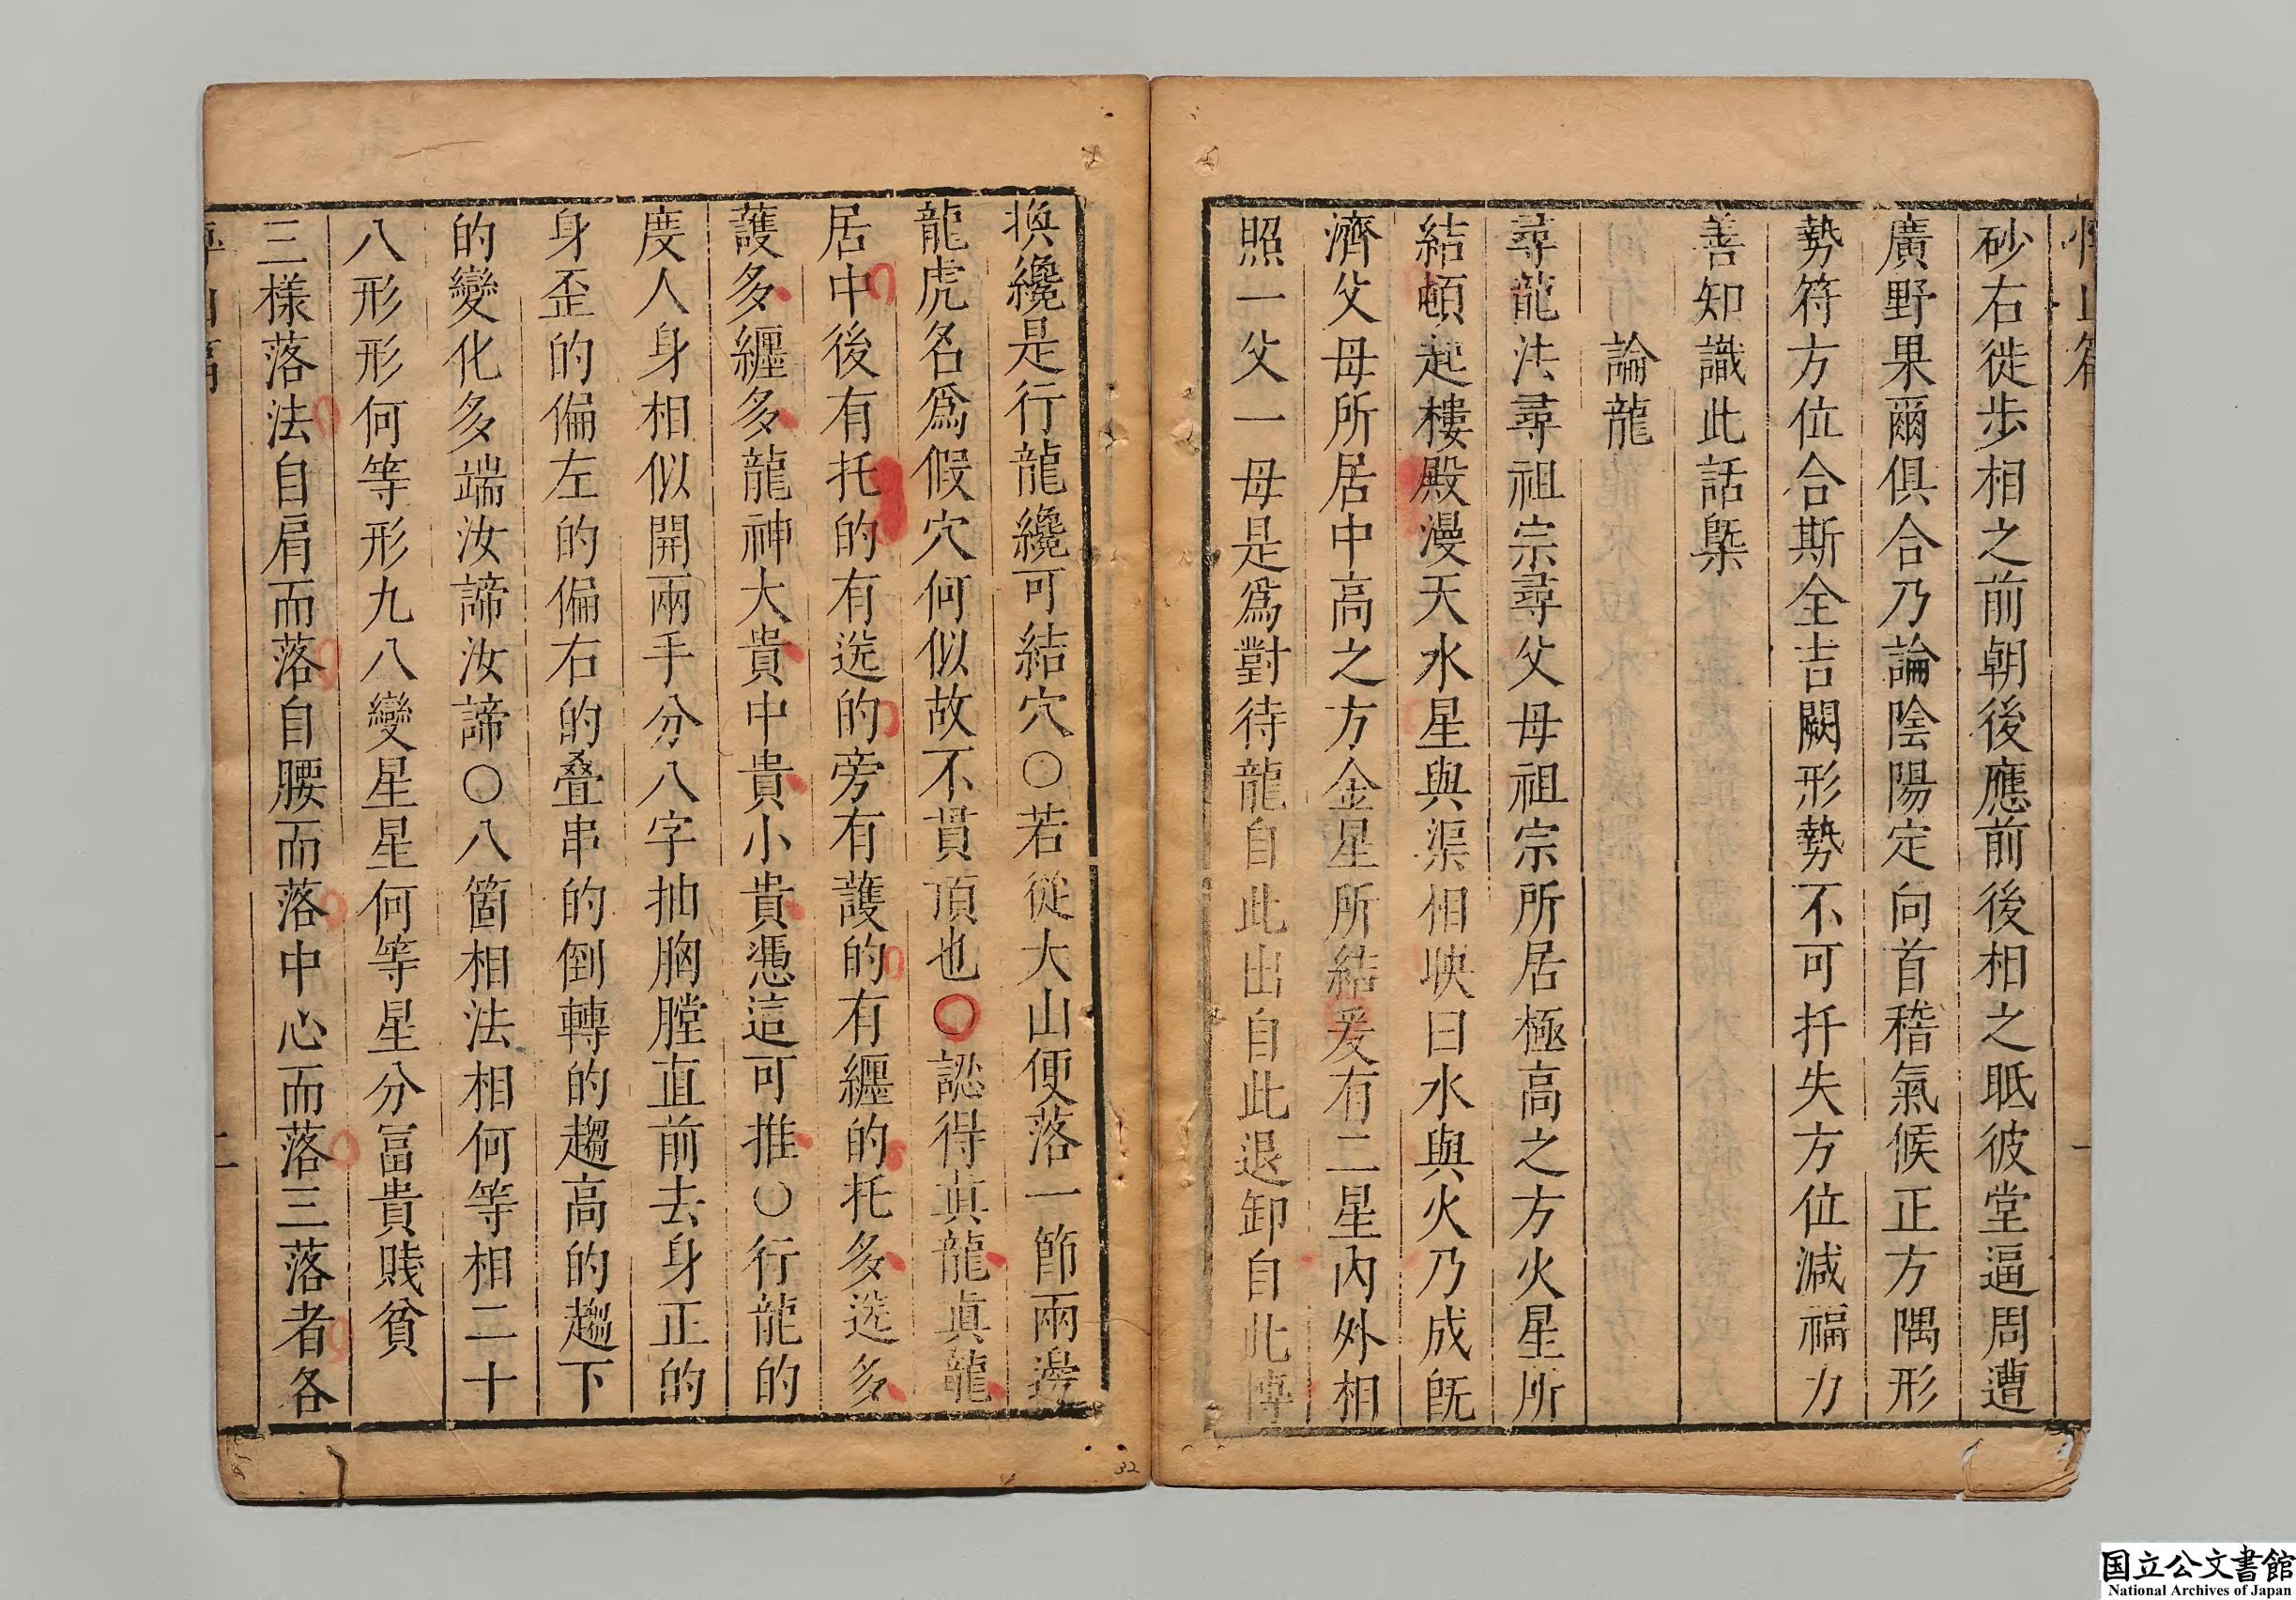 砂右徙步相之前朝後應前後相之眂彼堂逼周遭
廣野果爾俱合乃論陰陽定向首稽氣候正方隅形
勢符方位合斯全吉闕形勢不可扦失方位減福力
善知識此話槩
論龍
尋龍法尋祖宗尋父母祖宗所居極高之方火星所
結頓起樓殿漫天水星與渠相映曰水與火乃成旣
濟父母所居中高之方金星所結爰有二星內外相
照一父一母是爲對待龍自此出自此退卸自此博
換纔是行龍纔可結穴○若從大山便落一節兩邊
龍虎名爲假穴何似故不貫頂也○認得真龍真龍
居中後有托的有送的旁有護的有纒的托多送多
護多纒多龍神大貴中貴小貴憑這可推○行龍的
度人身相似開兩手分八字抽胸膛直前去身正的
身歪的偏左的偏右的叠串的倒轉的趨高的趨下
的變化多端汝諦汝諦○八箇相法相何等相二十
八形形何等形九八變星星何等星分冨貴賤貧
三樣落法自肩而落自腰而落中心而落三落者各
二
国立公文書館
National Archives of Japan
32